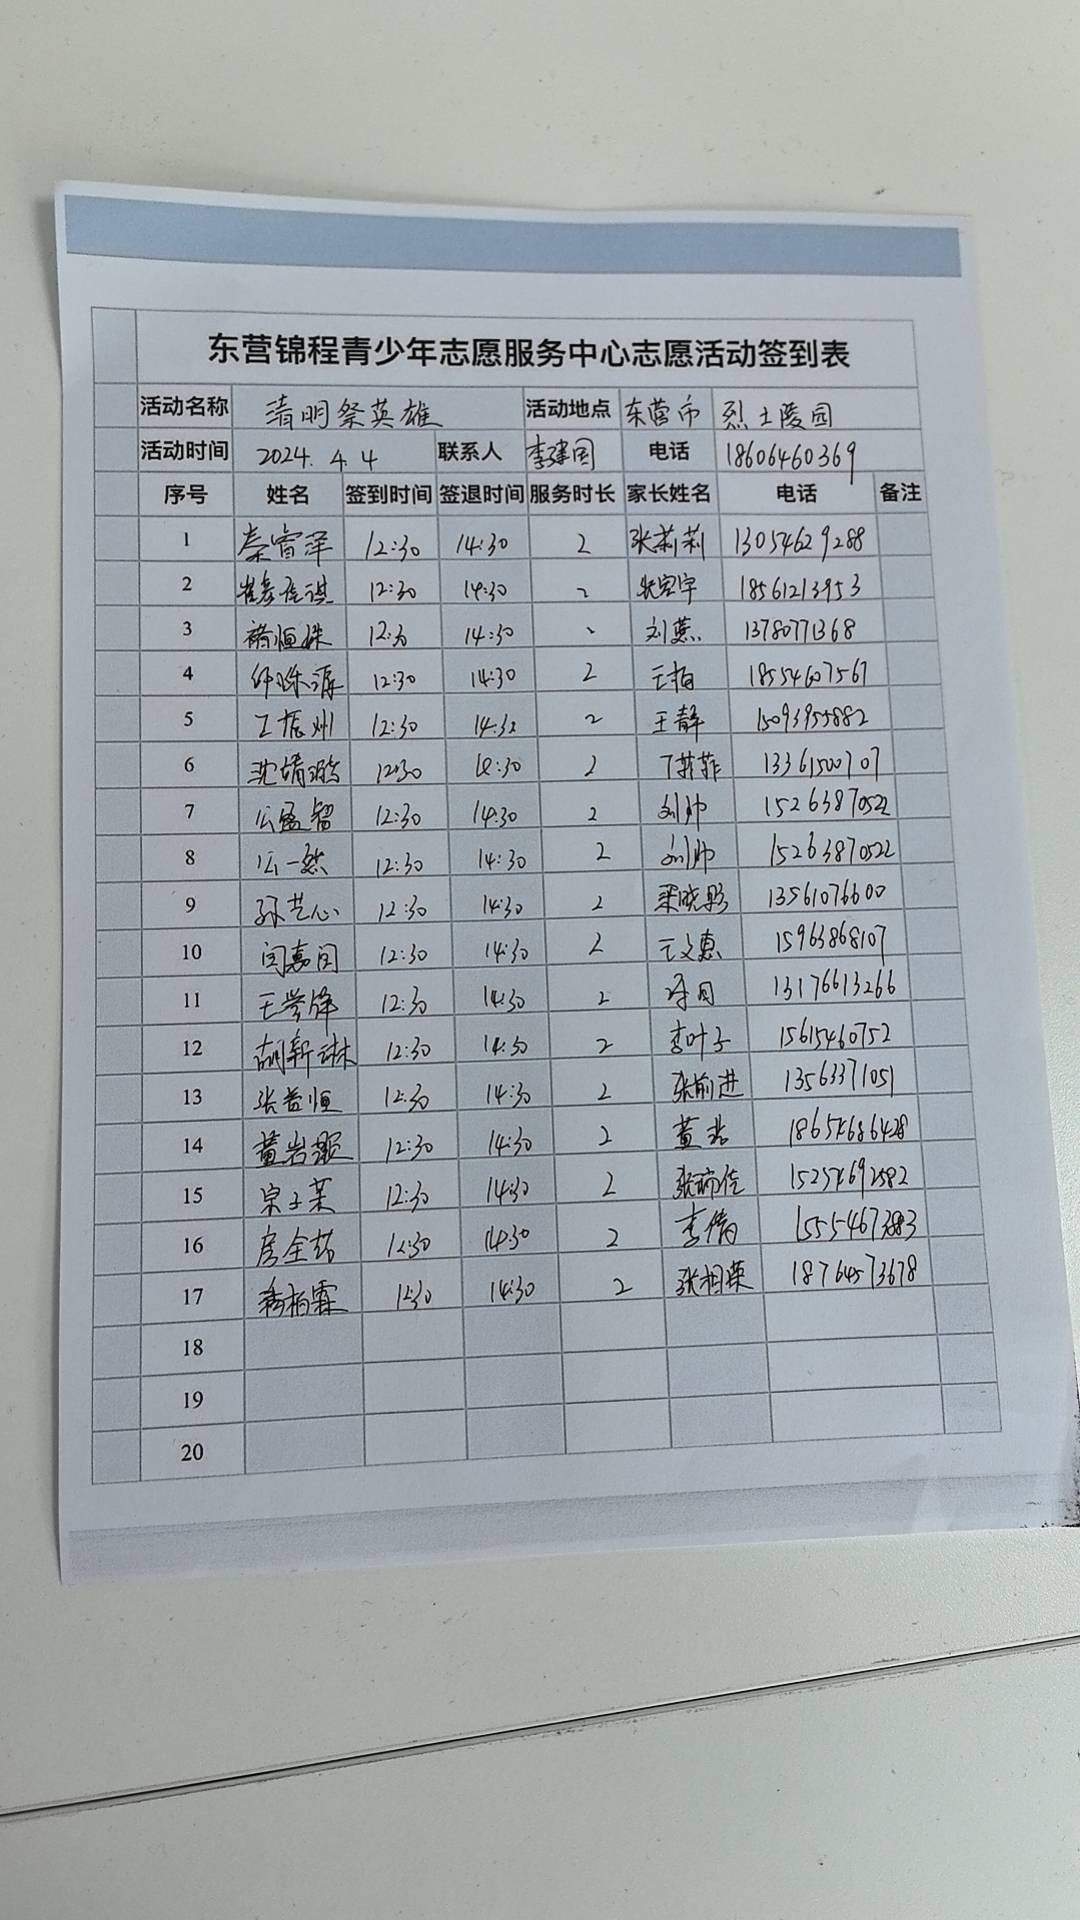 东营锦程青少年志愿服务中心志愿活动签到表
活动名称 清明祭英雄 活动地点 东营市 烈士陵园
活动时间 2024. 4. 4 联系人 李建国 电话 18606460369
序号 姓名 签到时间 签退时间 服务时长 家长姓名 电话 备注
1 秦睿泽 12:30 14:30 2 张莉莉 13054629288
2 12:30 14:30 2 18561213953
3 褚恒姝 12:30 14:30 2 刘燕 13780771368
4 12:30 14:30 2 18554607567
5 12:30 14:30 2 王静 15093955882
6 沈婧璐 12:30 14:30 2 丁菲菲 13361500707
7 公盛智 12:30 14:30 2 刘帅 15263870522
8 公一然 12:30 14:30 2 刘帅 15263870522
9 孙艺心 12:30 14:30 2 梁晓影 13561076600
10 闫嘉闰 12:30 14:30 2 王文惠 15963868107
11 12:30 14:30 2 13176613266
12 胡新琳 12:30 14:30 2 李叶子 15615460752
13 张益恒 12:30 14:30 2 张前进 13563371051
14 董岩灏 12:30 14:30 2 18654686428
15 宗子茉 12:30 14:30 2 张瑜佳 15254692582
16 12:30 14:30 2 李倩 15554673883
17 12:30 14:30 2 张相荣 18764573678
18
19
20